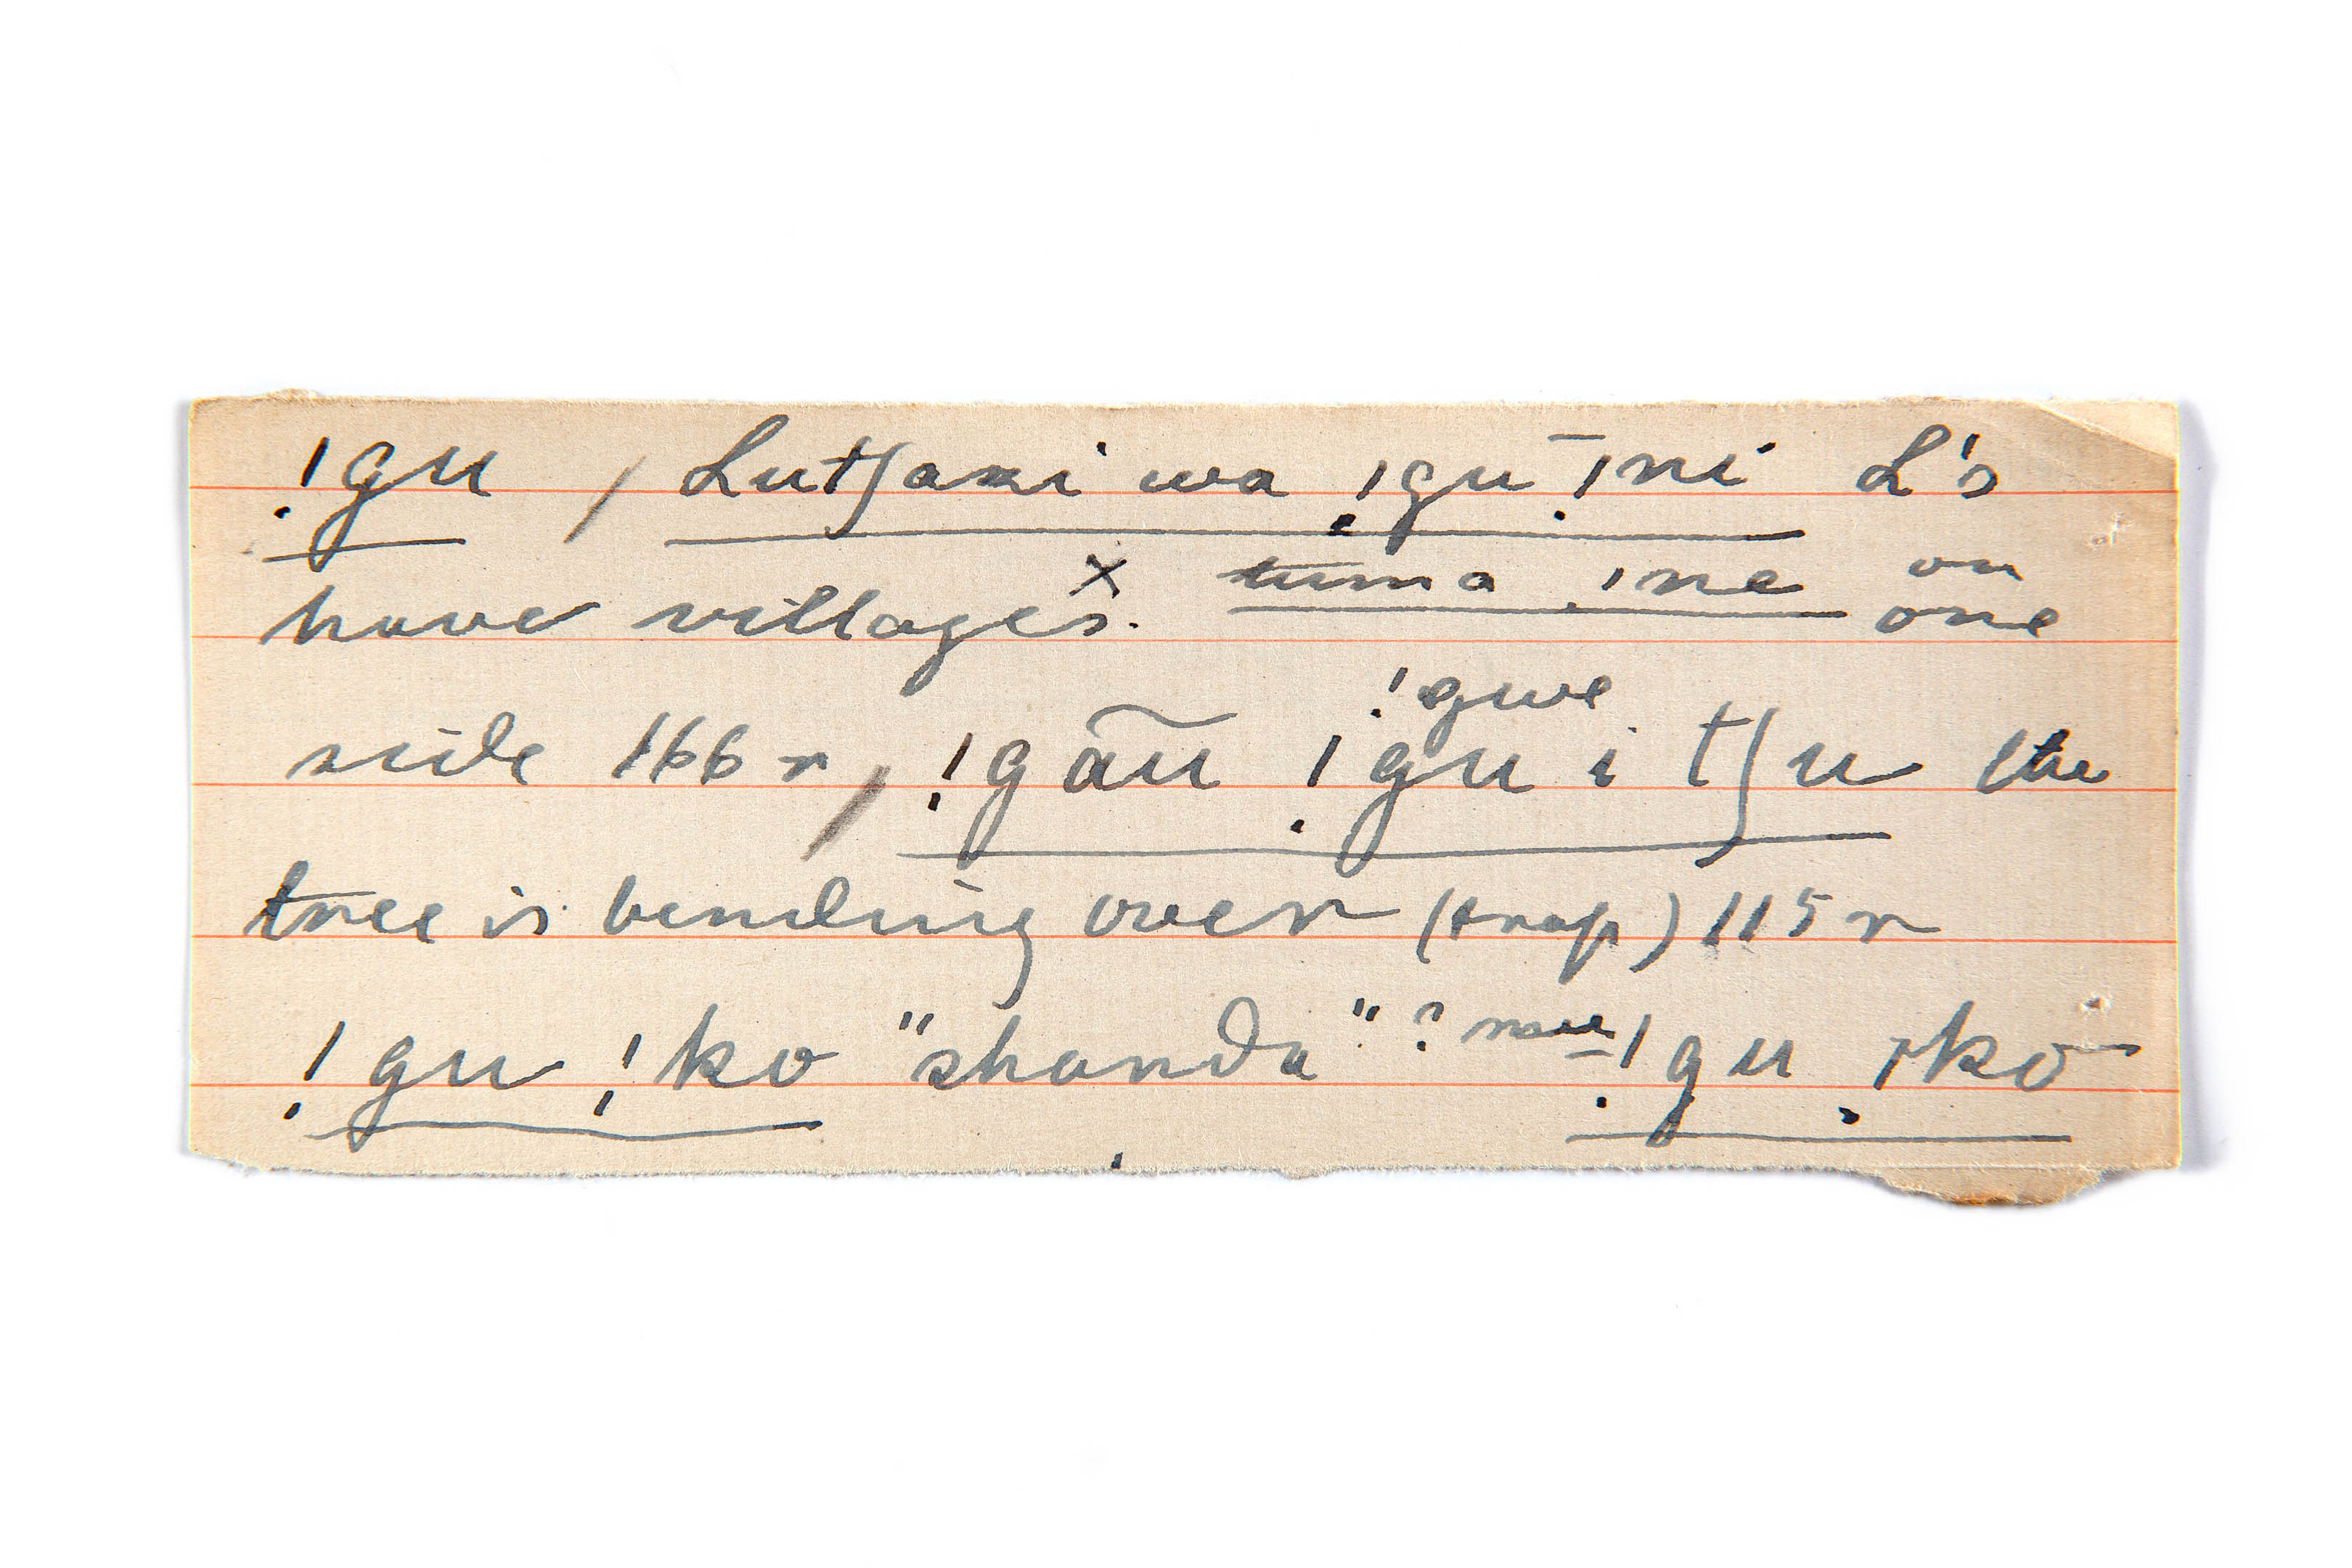 !gu, Lutʃazi wa !gu !ni L's
have villages.x tuma !ne on one
side 166 r, !gãu !gu i tʃu the
!gwe
tree is bending over (trap) 115 r
!gu !ko "shanda" ? !gu !ko